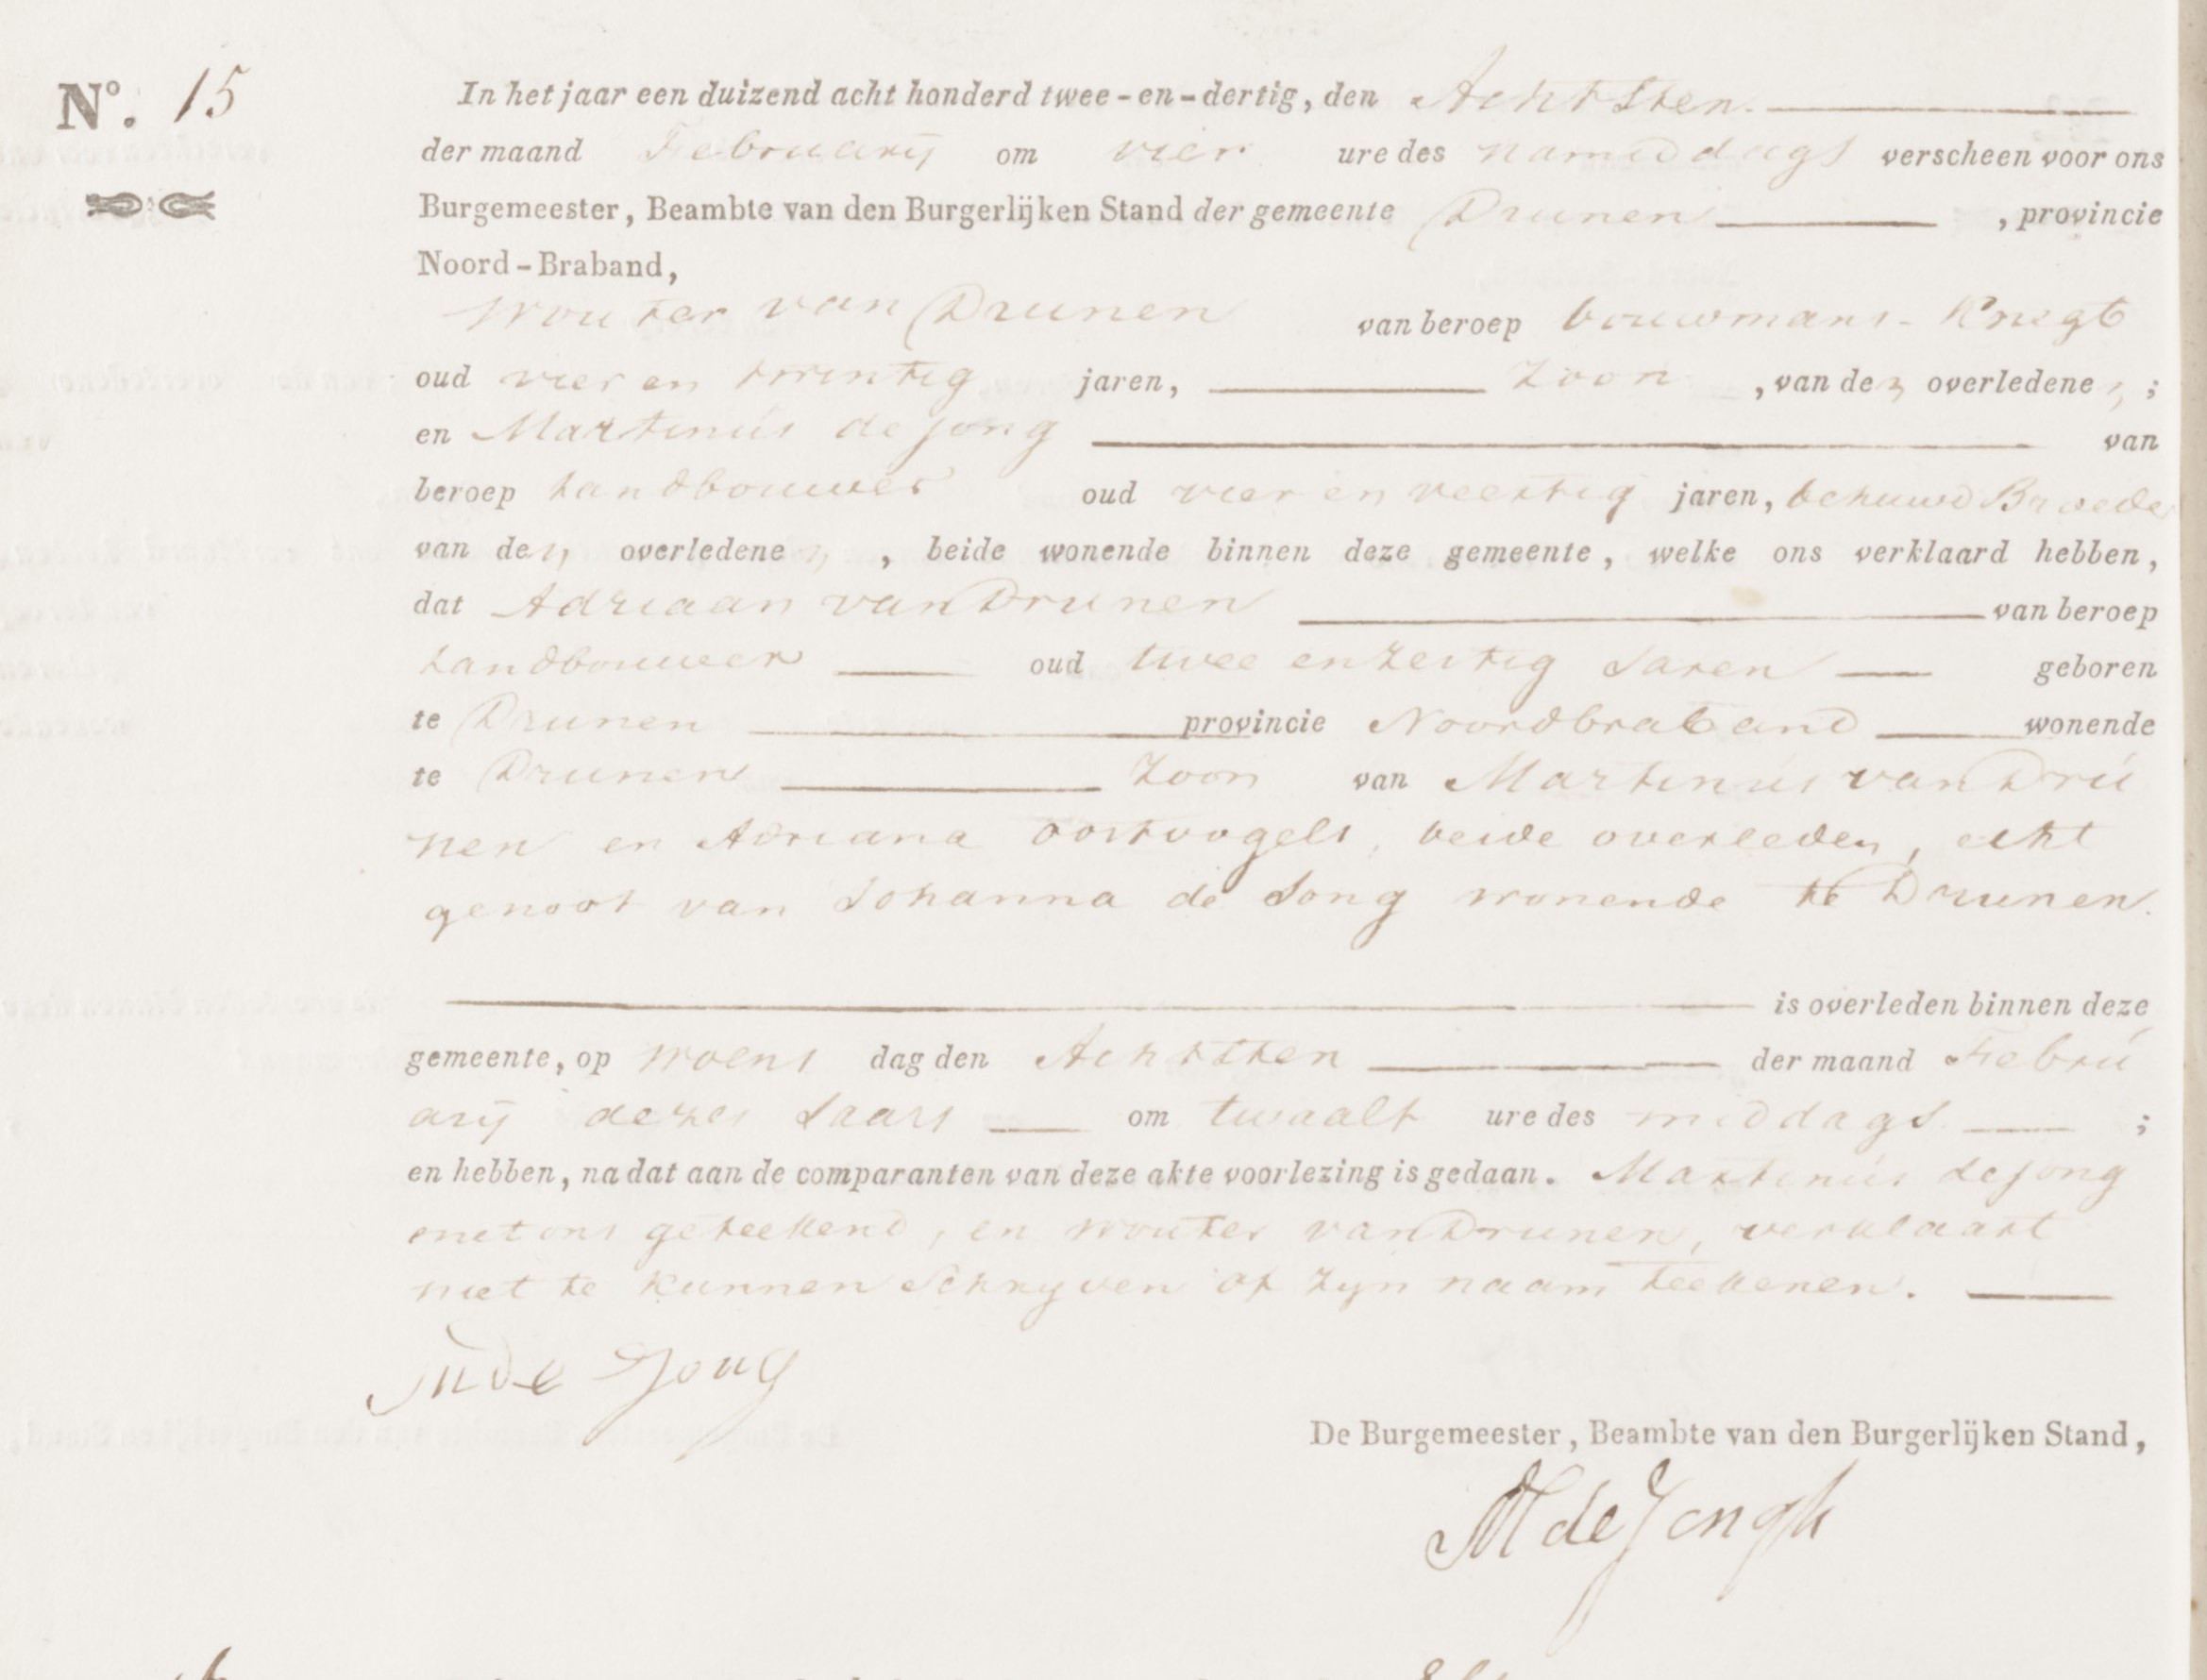 N°. 15
In het jaar een duizend acht honderd twee-en-dertig, den Achtsten.
der maand Februarij om vier ure des namiddags verscheen voor ons
Burgemeester, Beambte van den Burgerlijken Stand der gemeente Drunen, provincie
Noord-Braband,
Wouter van Drunen van beroep bouwmans-Knegt
oud vier en twintig jaren, Zoon, van den overledenen;
en Martinús de jong van
beroep Landbouwer oud vier en veertig jaren, behuwd Broeder
van den overledenen, beide wonende binnen deze gemeente, welke ons verklaard hebben,
dat Adriaan van Drunen van beroep
Landbouwer oud twee en zestig Jaren geboren
te Drunen provincie Noordbraband wonende
te Drunen Zoon van Martinús van Drú
nen en Adriana oostvogels, beide overleden, echt
genoot van Johanna de Jong wonende te Drunen.
is overleden binnen deze
gemeente, op woens dag den Achtsten der maand Febrú
arij dezes Jaars om twaalf ure des middags;
en hebben, na dat aan de comparanten van deze akte voorlezing is gedaan. Martinús de jong
met ons geteekend, en wouter van Drunen, verklaart
niet te kunnen Schryven of zyn naam teekenen.
M de Jong
De Burgemeester, Beambte van den Burgerlijken Stand,
M de Jongh